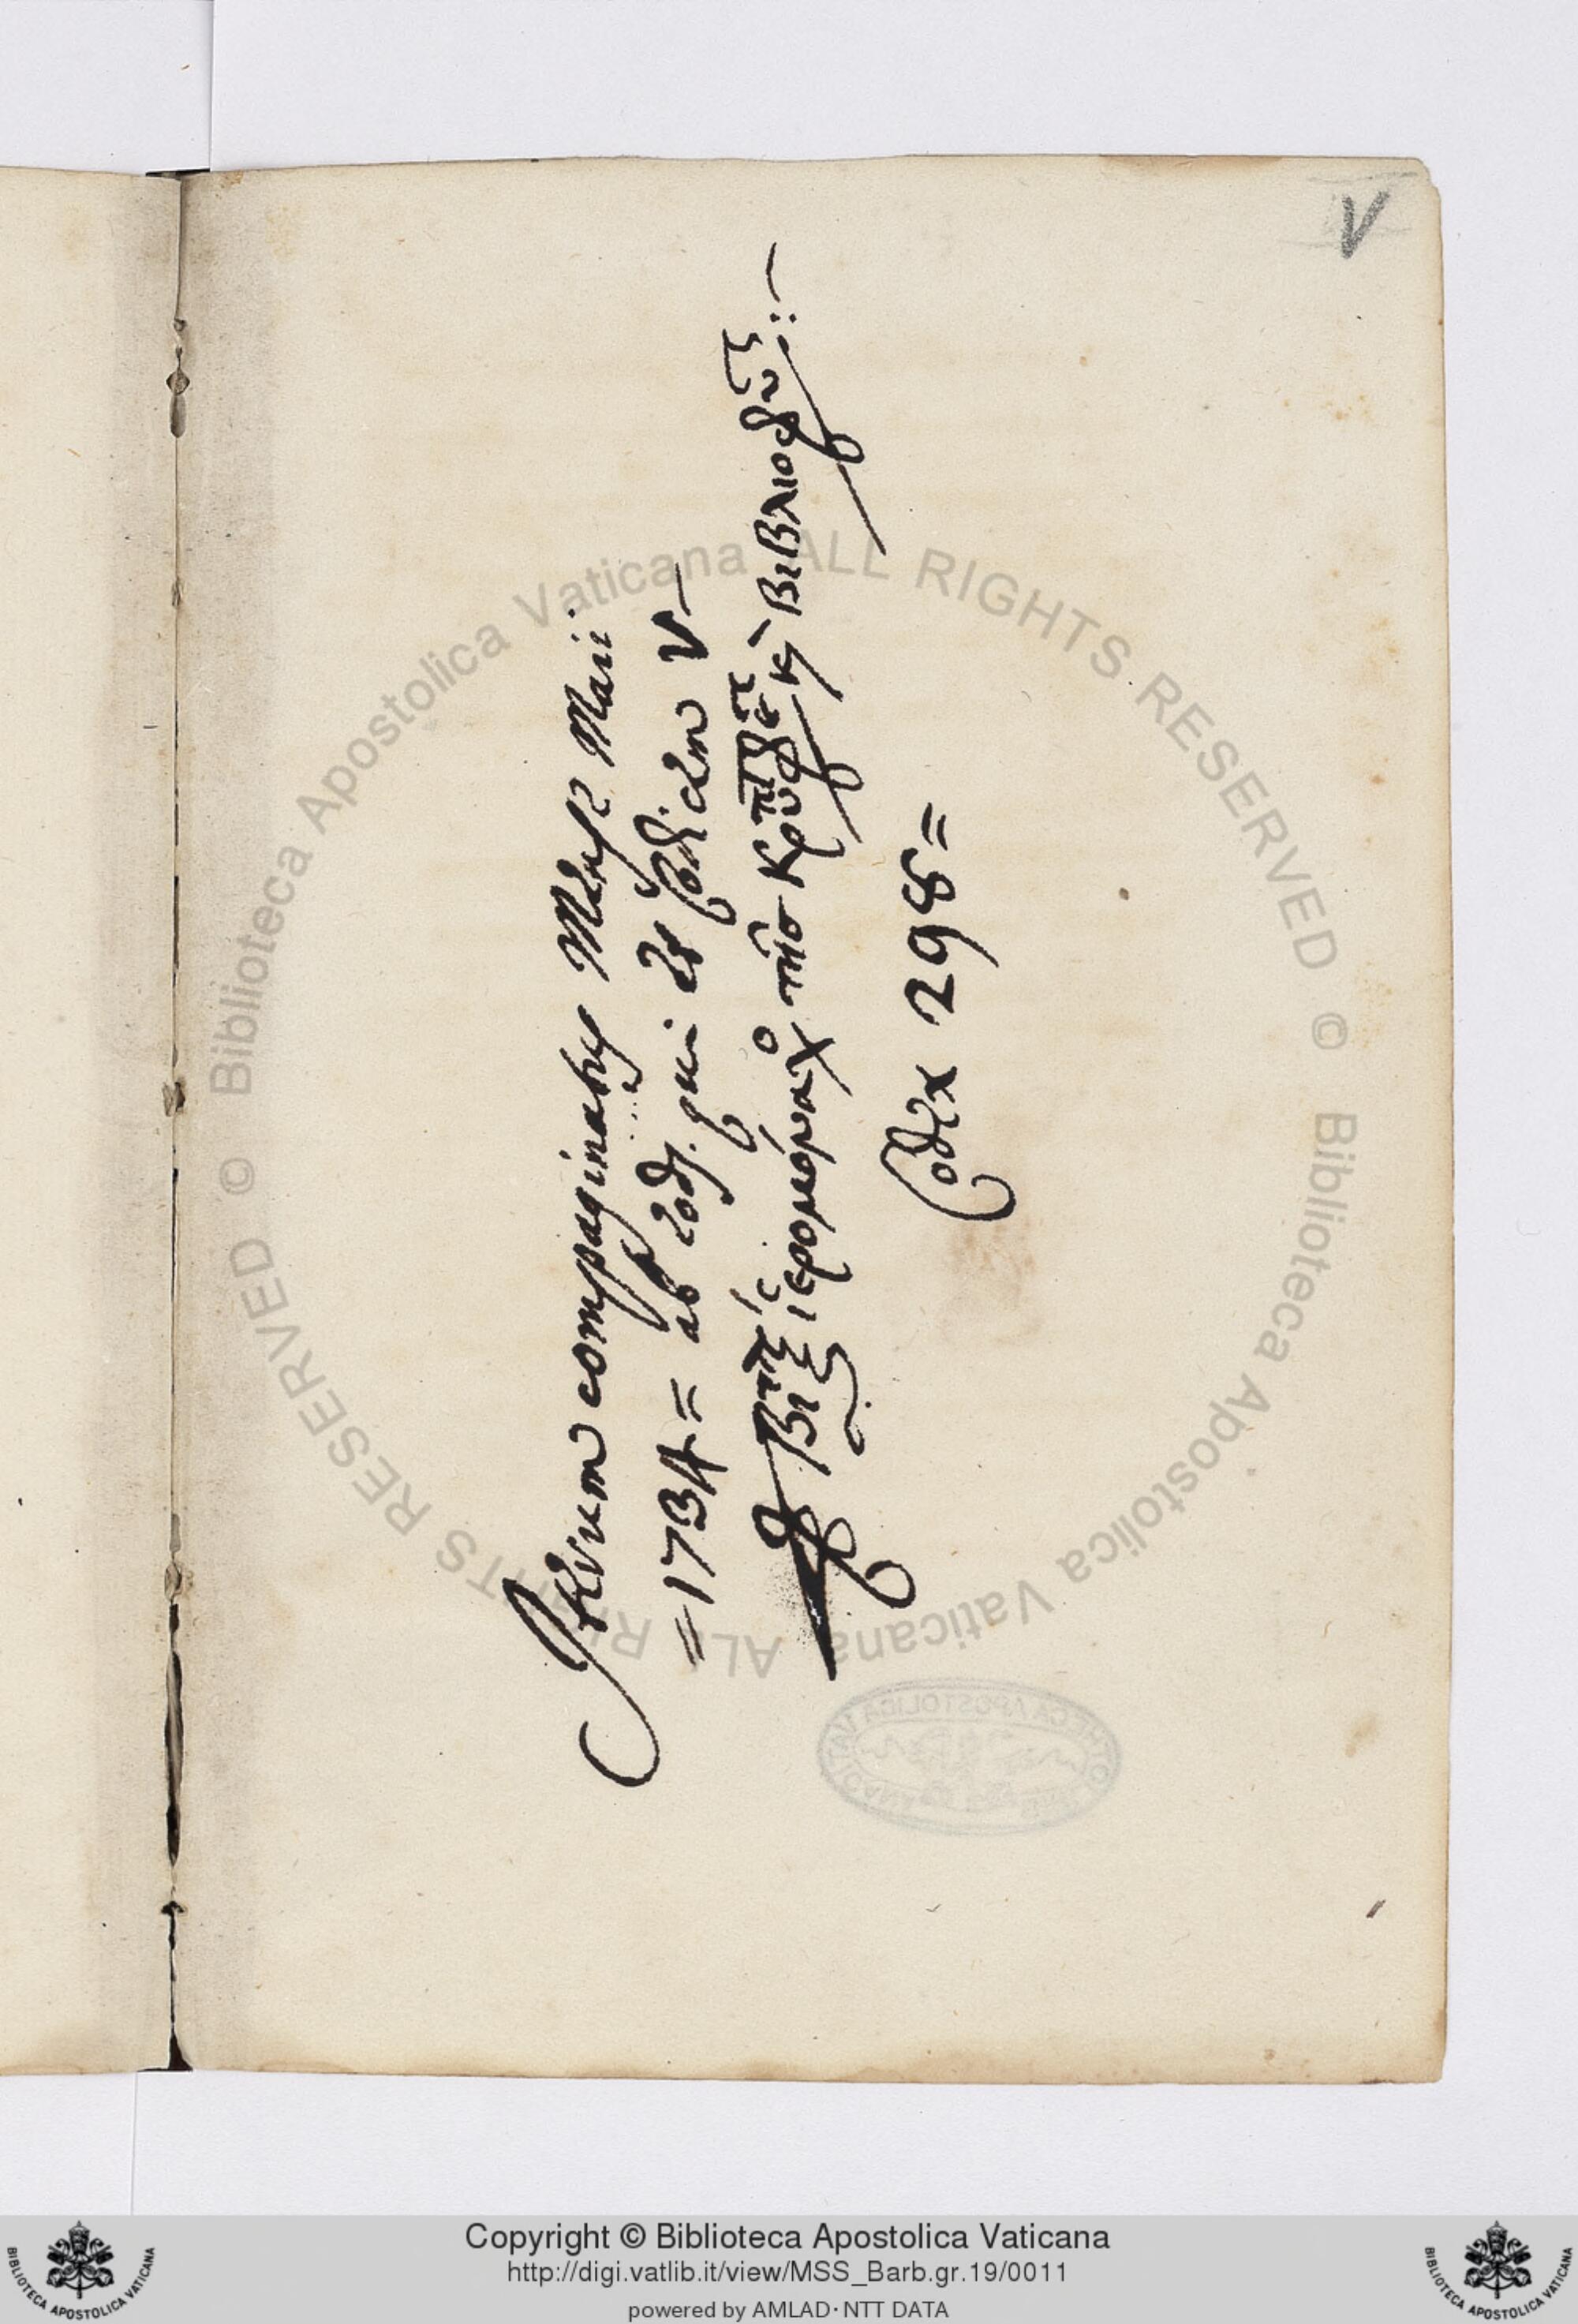 V
Iterum compaginatus Mense Maii
=1734= ab eod. qui et Codicem V—
ἱερομόναχο τῆσ κρυπ κ βιβλιοφυ :—
Codex 295=
© Biblioteca Apostolica Vaticana ALL RIGHTS RESERVED © Biblioteca Apostolica Vaticana ALL RIGHTS RESERVED
Copyright © Biblioteca Apostolica Vaticana
http://digi.vatlib.it/view/MSS_Barb.gr.19/0011
powered by AMLAD·NTT DATA
BIBLIOTECA APOSTOLICA VATICANA
BIBLIOTECA APOSTOLICA VATICANA